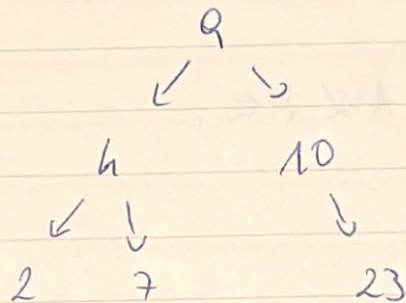 9
4 10
2 7 23